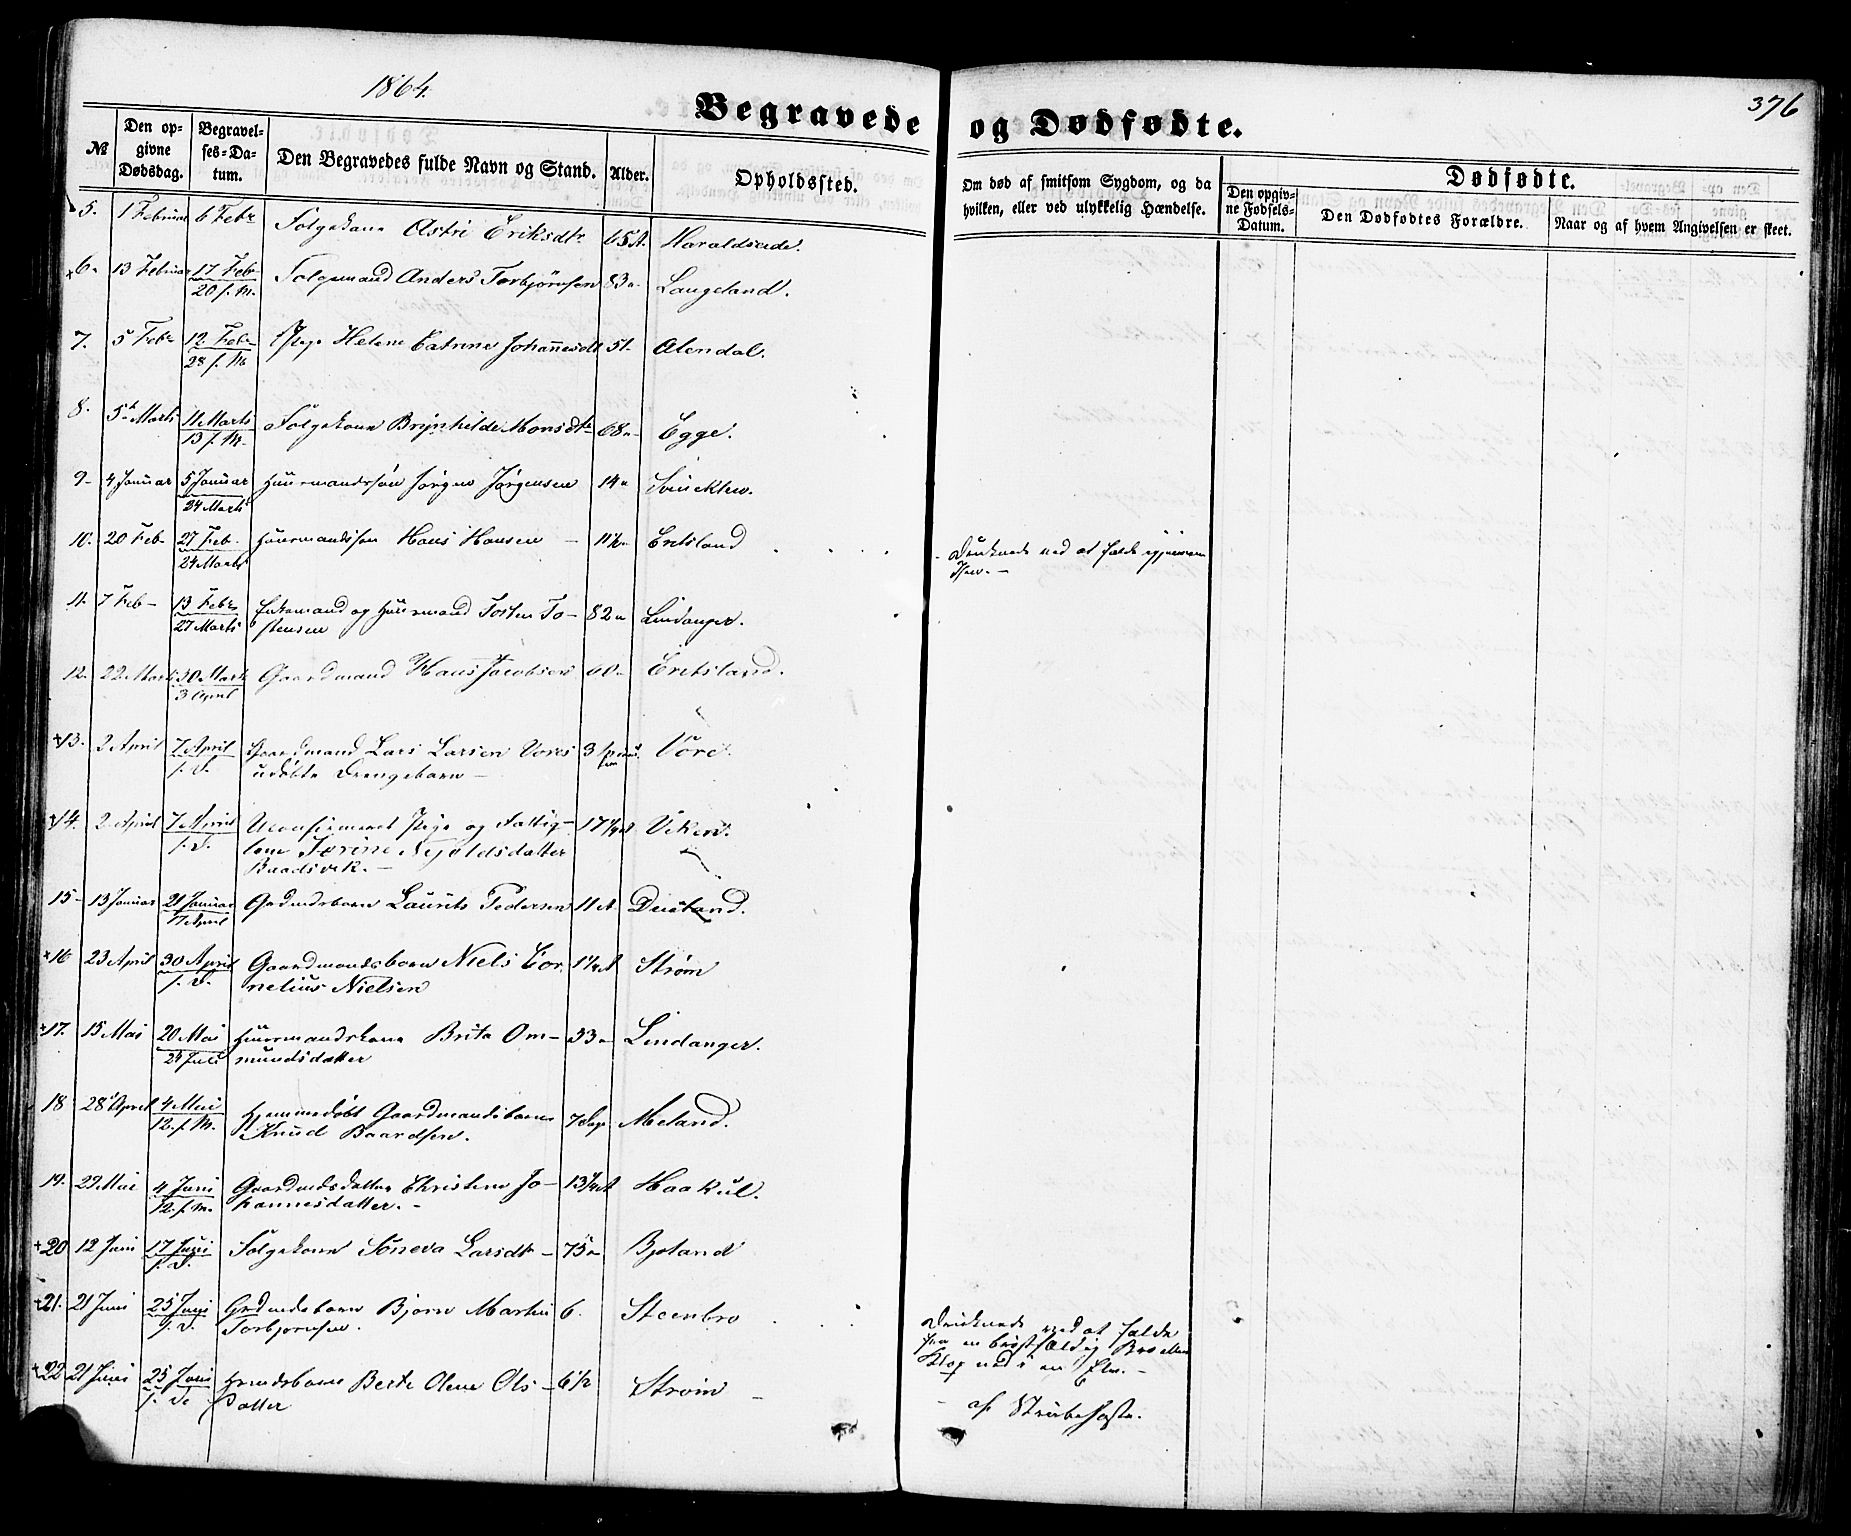 1864.
376
Begravede og Dødfødte.
№
Den opgivne Dødsdag.
Begravelses-Datum.
Den Begravedes fulde Navn og Stand.
Alder.
Opholdssted.
Om død af smitsom Sygdom, og da hvilken, eller ved ulykkelig Hændelse.
Dødfødte.
Den opgivne Fødsels-Datum.
Den Dødfødtes Forældre.
Naar og af hvem Angivelsen er skeet.
5. 1 Februar 6 Febr Folgekone Astri Eriksdtr 65 A.
6 13 Februar 17 Feb 20 f. M. Folgemand Anders Torbjørnsen 83 Langeland.
7. 5 Febr 12 Febr 28 f. M. Pige Helene Catrine Johannesdtr Alendal.
8. 5 Marts 11 Marts 13 f. M. Folgekone Brynhilde Monsdtr 68 Egge.
9 4 Januar 5 Januar 24 Marts Huusmandssøn Jørgen Jørgensen 14
10. 20 Feb 27 Feb. 24 Marts Huusmandssøn Hans Hansen 11½ Eritsland
Druknede ved at falde igjennem
Isen.
11. 7 Feb 13 Febr 27 Marts Enkemand og Huusmand Tosten To-
stensen 82 Lindanger.
12. 22 Marts 30 Marts 3 April Gaardmand Hans Jacobsen 60 Eritsland.
13. 2 April 7 April f. D. Gaardmand Lars Larsen Vores
udøbte Drengebarn 3 Vöre.
14. 2 April 7 April f. D. Uconfirmeret Pige og Fattig-
lem 17 Viken.
15 13 Januar 21 Januar 17 April Grdmdsbarn Laurits Pedersen 11 A
16 23 April 30 April f. D. Gaardmandsbarn Niels Cor-
nelius Nielsen 1¼ A Strøm
17. 15 Mai 20 Mai 24 Juli Huusmandskone Brita Om-
mundsdatter 33 Lindanger.
18 28 April 4 Mai 12. f. M. Hjemmedøbt Gaardmandsbarn
Knud Baardsen. 7 Dage Meland.
19. 29 Mai 4 Juni 12. f. M. Gaardmdsdatter Christine Jo-
hannesdatter. 13¼ A Haakul.
20 12 Juni 17 Juni f. D. Folgekone Søneva Larsdtr 75
21. 21 Juni 25 Juni f. D. Grdmdsbarn Bjørn Martin
Torbjørnsen. 6. Steenbro
Druknede ved at falde
fra en brøstfældig Bro eller
Klop ned i en Elv.
22 21 Juni 25 Juni f. D. Hmdsbarn Berte Olene Ols-
datter 6½ Strøm
af Strubehoste.